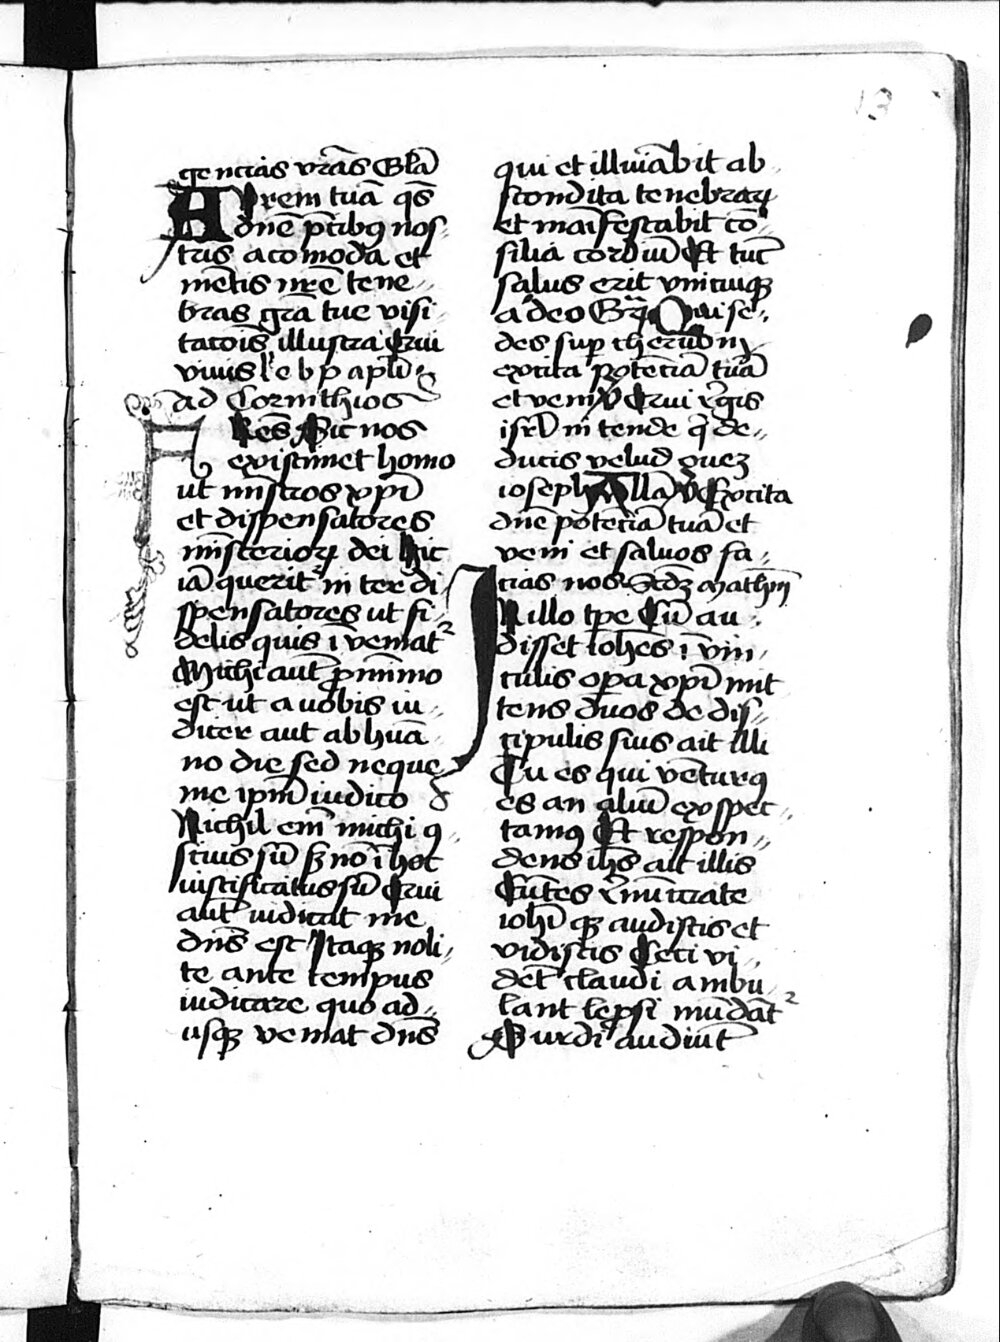 13
gencias vr̃as Gl̃a
Aurem tuã q̃s
dñe p̃cibꝰ nos
tris acomoda et
mẽtis nr̃e tene
bras gr̃a tue visi
tacõis illustra Qui
viuis l̃c̃ b p apl̃i
ad Corinthios
Fres Sic nos
existimet homo
ut mĩstros xp̃i
et dispensatores
mĩsterioꝝ dei hic
iã querit̉ in ter di
spensatores ut fi
delis quis ĩ veniat̉
Michi aut̃ p̃ minimo
est ut a uobis iu
dicer aut ab huã
no die sed neque
me ip̃m iudico
Nichil em̃ michi ꝯ
scius sũ sꝫ nõ ĩ hoc
iustificatus sũ Qui
aut̃ iudicat me
dñs est Itaqꝫ noli
te ante tempus
iudicare quo ad
usqꝫ veniat dñs
qui et illuiãbit ab
scondita tenebraꝝ
et maĩfestabit cõ
silia cordiũ Et tũc
salus erit vnicuiqꝫ
a deo Gr̃ Qui se
des sup̱ cherubin
excita potẽciã tuã
et veni V̉ Qui r̃gis
isrl̃ in tende q̃ de
ducis velud oueꝫ
ioseph All̃a V̉ Excita
dñe potẽciã tuã et
veni et saluos fa
cias nos Scd̃ꝫ mathm̃
In illo tp̃e Cũ au
disset ioh̃es ĩ vin
culis op̱a xp̃i mit
tens duos de dis
cipulis suis ait illi
Tu es qui vẽturꝰ
es an aliũ exspec
tamꝰ Et respon
dens ih̃s ait illis
Eũtes r̃nũciate
ioh̃i qꝫ audistis et
vidistis Ceci vi
dẽt claudi ambu
lant lep̱si mũdãt̉
Surdi audiũt